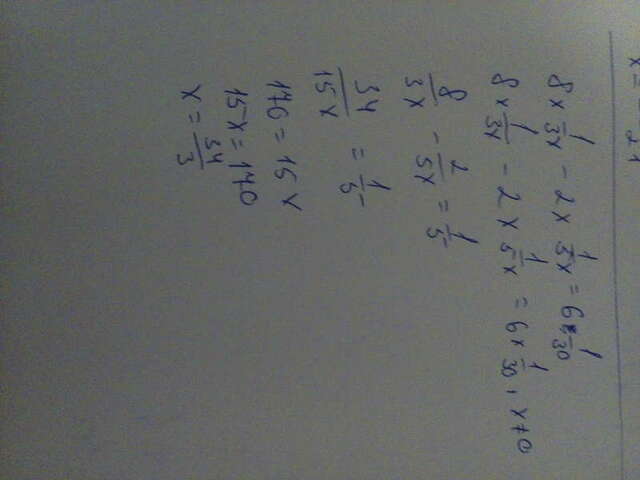 8 × 1/3x - 2 × 1/5x = 6 × 1/30
8 × 1/3x - 2 × 1/5x = 6 × 1/30 , x ≠ 0
8/3x - 2/5x = 1/5
34/15x = 1/5
170 = 15x
15x = 170
x = 34/3